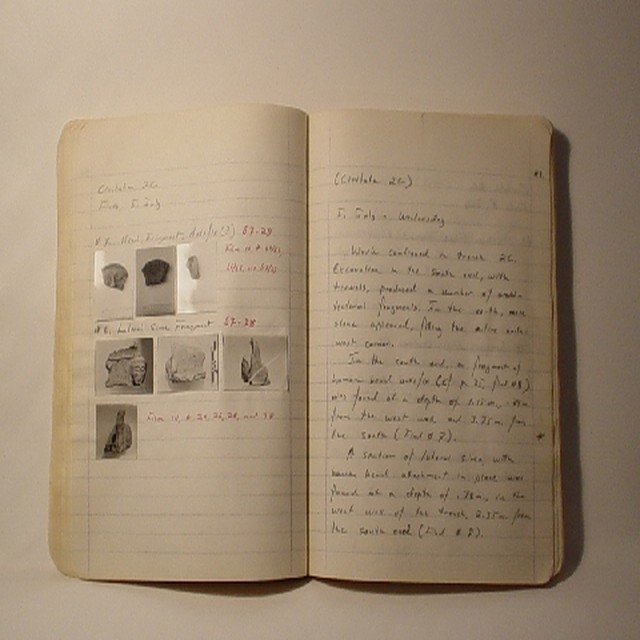 Civitate 2C
Finds, 5 July
#7. Head, Fragment Antefix (?) 57-29
Film 11, #
#8, Lateral Sima Fragment 57-28
Film 10, # 24, 25, 26, and 38
(Civitate 2C)
41
5, July - Wednesday
Work continued in trench 2C.
Excavation in the south end, with
trowels, produced a number of archi-
tectural fragments. In the north, more
stone appeared, filling the entire
west corner.
In the south end, a fragment of
human head antefix (cf p. 25, find #8)
was found at a depth of
from the west wall and 3.75m from
the south (Find #7).
A section of lateral sima, with
human head attachment in place was
found at a depth of .78m, in the
west wall of the trench, 2.35m from
the south end (Find #8).